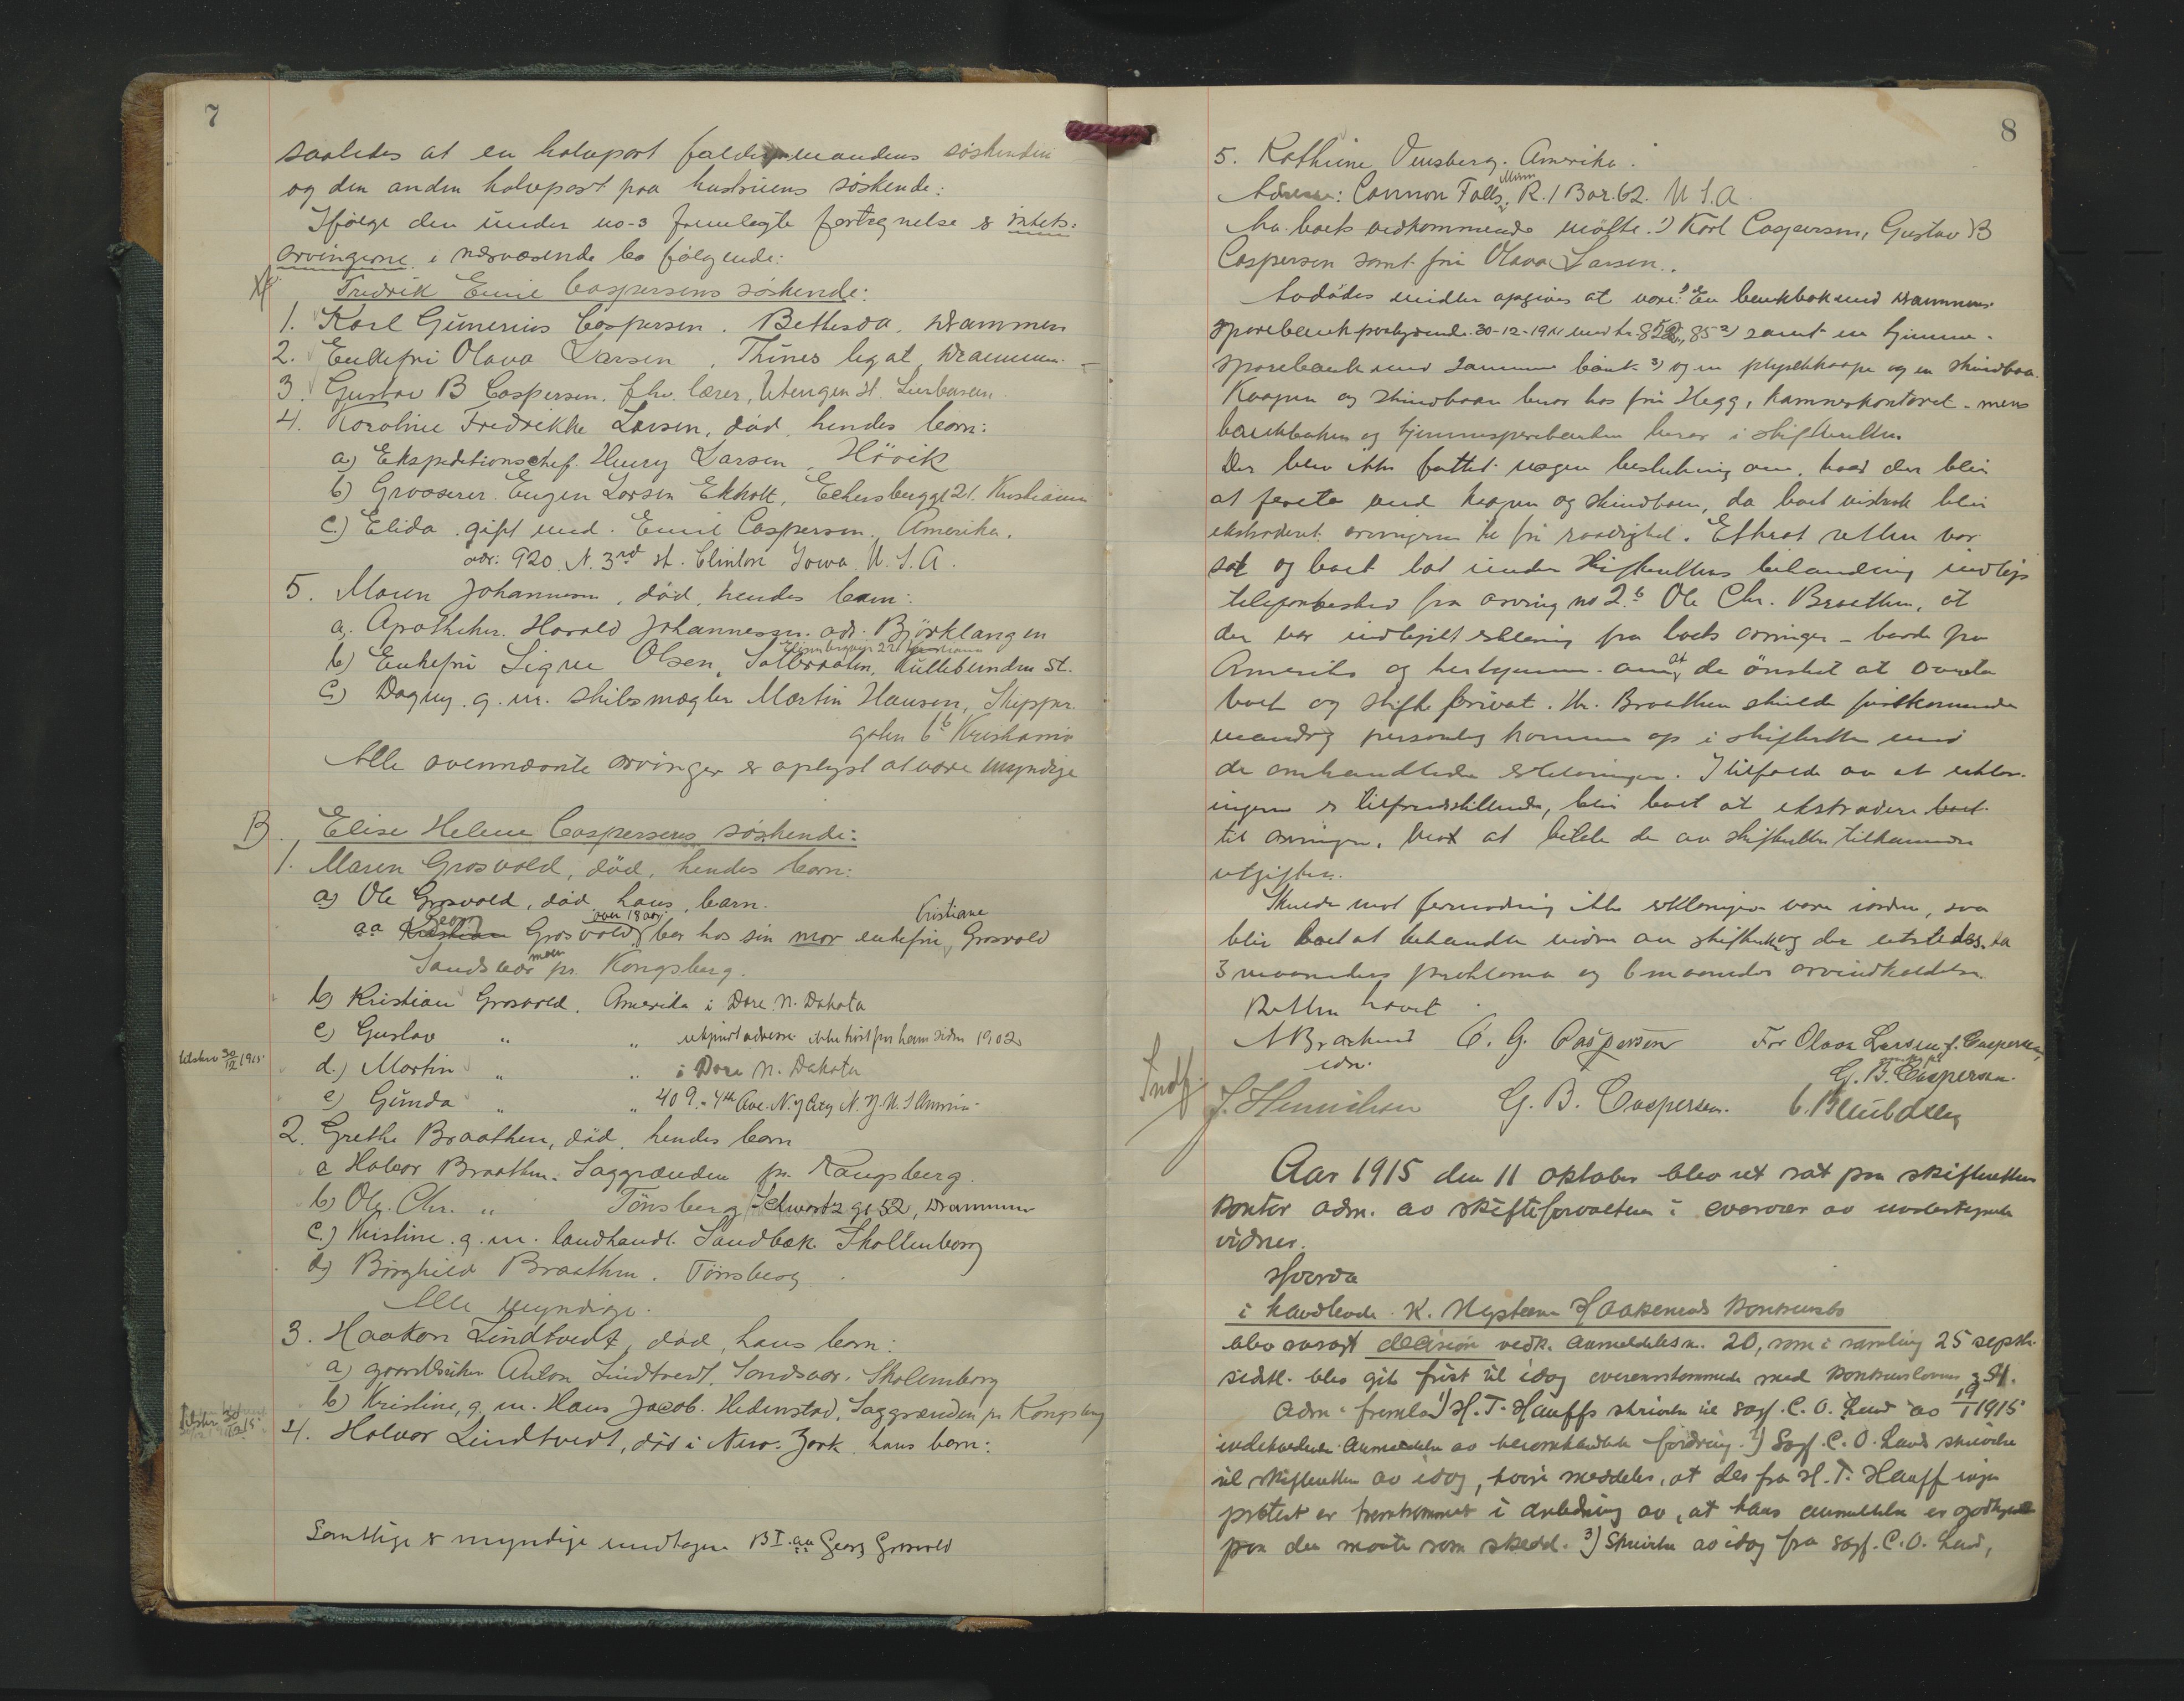 7
saaledes at en halvpart falder paa mandens søskende
og den anden halvpart paa hustruens søskende:
Ifølge den under no. 3 fremlagte fortegnelse er intets-
arvingerne i nærværende bo følgende:
Fredrik Emil Caspersens søskende:
1. Karl Gunerius Caspersen. Bethesda, Drammen
2. Enkefru Olava Larsen, Thünes legat, Drammen.
3. Gustav B Caspersen. fhv. lærer, Utengen st.
4. Karoline Fredrikke Larsen, død, hendes barn:
a) Ekspeditionschef. Henry Larsen, Hövik
b) Grosserer. Eugen Larsen Ekholt, Eckersbergg 21. Kristiania
c) Elida. gift med. Emil Caspersen, Amerika.
adr: 920 N. 3rd st. Clinton Iowa U. S. A.
5. Maren Johannesen, død, hendes barn:
a. Apotheker. Harald Johannessen. adr. Björklangen
b) Enkefru Signe Olsen, Solbraaten, Kullebunden St.
c) Dagny. g. m. skibsmægler Martin Hansen, Skippr.
gaten 6b Kristiania
Alle ovennævnte arvinger er oplyst at være myndige
B. Elise Helene Caspersens søskende:
1. Maren Grosvold, død, hendes barn:
a) Ole Grosvold, død, hans barn.
Georg over 18 aar Kristiane
aa Kristian Grosvold, bor hos sin mor enkefru Grosvold
moen
Sandsvær pr. Kongsberg.
b) Kristian Grosvold. Amerika i Dore N. Dakota
c) Gustav " " ukjendt adresse ikke hört fra ham siden 1902
utskr. 30/12 1915
d.) Martin " " i Dore N. Dakota
e) Gunda " " 409 - 4th Ave. N. Y City N. Y. U. S Amerika
2. Grethe Braathen, død, hendes barn
a Halvor Braathen. Saggrænden pr. Kongsberg.
b) Ole Chr. " Tönsberg Schwartz gt 52, Drammen
c.) Kristine. g. m. landhandl. Sandbæk. Skollenborg
d) Borghild Braathen. Tönsberg.
Alle myndige.
3. Haakon Lindtvedt, død, hans barn:
a) gaardbruker Anton Lindtvedt. Sandsvær, Skollenborg
b) Kristine, g. m. Hans Jacob. Hedenstad, Saggrænden pr Kongsberg
4. Halvor Lindtvedt, død i New-York, hans barn:
Samtlige er myndige undtagen B I. aa Georg Grosvold
8
5. Kathrine Vensberg. Amerika.
Minn
Adresse: Cannon Falls, R. 1 Box. 62. U. S. A.
For boets vedkommende møtte. 1) Karl Caspersen, Gustav B
Caspersen samt fru Olava Larsen.
Avdødes midler opgives at være: 1) En bankbok med Drammens
Sparebank paalydende 30-12-1914 med kr. 85 2) samt en hjemme-
sparebank med samme bank. 3) og en plyschkaape og en skindboa.
Kaapen og skindboaen beror hos fru Hegg, kæmnerkontoret - mens
bankboken og hjemmesparebanken beror i skifteretten
Der blev ikke fattet nogen beslutning om, hvad der blir
at foreta med kaapen og skindboaen, da boet mulig blir
ekstraderet arvingerne til fri raadighet. Efterat retten var
sat og boet tat under skifterettens behandling indløp
telefonbesked fra arving no 2.b Ole Chr. Braathen, at
der var indhentet erklæring fra boets arvinger - baade fra
Amerika og herhjemme - om at de ønsket at overta
boet og skifte privat. Hr. Braathen skulde førstkommende
mandag personlig komme op i skifteretten med
de omhandlede erklæringer. I tilfælde av at erklær-
ingerne er tilfredsstillende, blir boet at ekstradere boet
til arvingene, mot at betale de av skifteretten tilkommende
utgifter.
Skulde mot formodning ikke erklæringen være iorden, saa
blir boet at behandle videre av skifteretten og der utstedes da
3 maaneders proklama og 6 maaneders arvindkaldelse.
Retten hævet.
C. G. Caspersen For Olava Larsen f. Caspersen,
G. B. Caspersen.
G. B. Caspersen.
Aar 1915 den 11 oktober blev ret sat paa skifterettens
kontor adm. av skifteforvalteren i overvær av undertegnede
vidner.
Hvorda
i handlende K. Nystrøm Haakensens konkursbo
blev avsagt decision vedk. anmeldelsesn. 20, som i samling 25 septbr.
sidstl. blev git frist til idag overensstemmende med konkurslovens § 54.
Adm. fremla 1) H. T. Hauffs skrivelse til sagf. C. O. Lund av 9/1 1915
indeholdende anmeldelse av heromhandlede fordring. 2) Sagf. C. O. Lunds skrivelse
til skifteretten av idag, hvori meddeles, at der fra H. T. Hauff ingen
protest er fremkommet i anledning av, at hans anmeldelse er godkjendt
paa den maate som skedd. 3) Skrivelse av idag fra sagf. C. O. Lund,